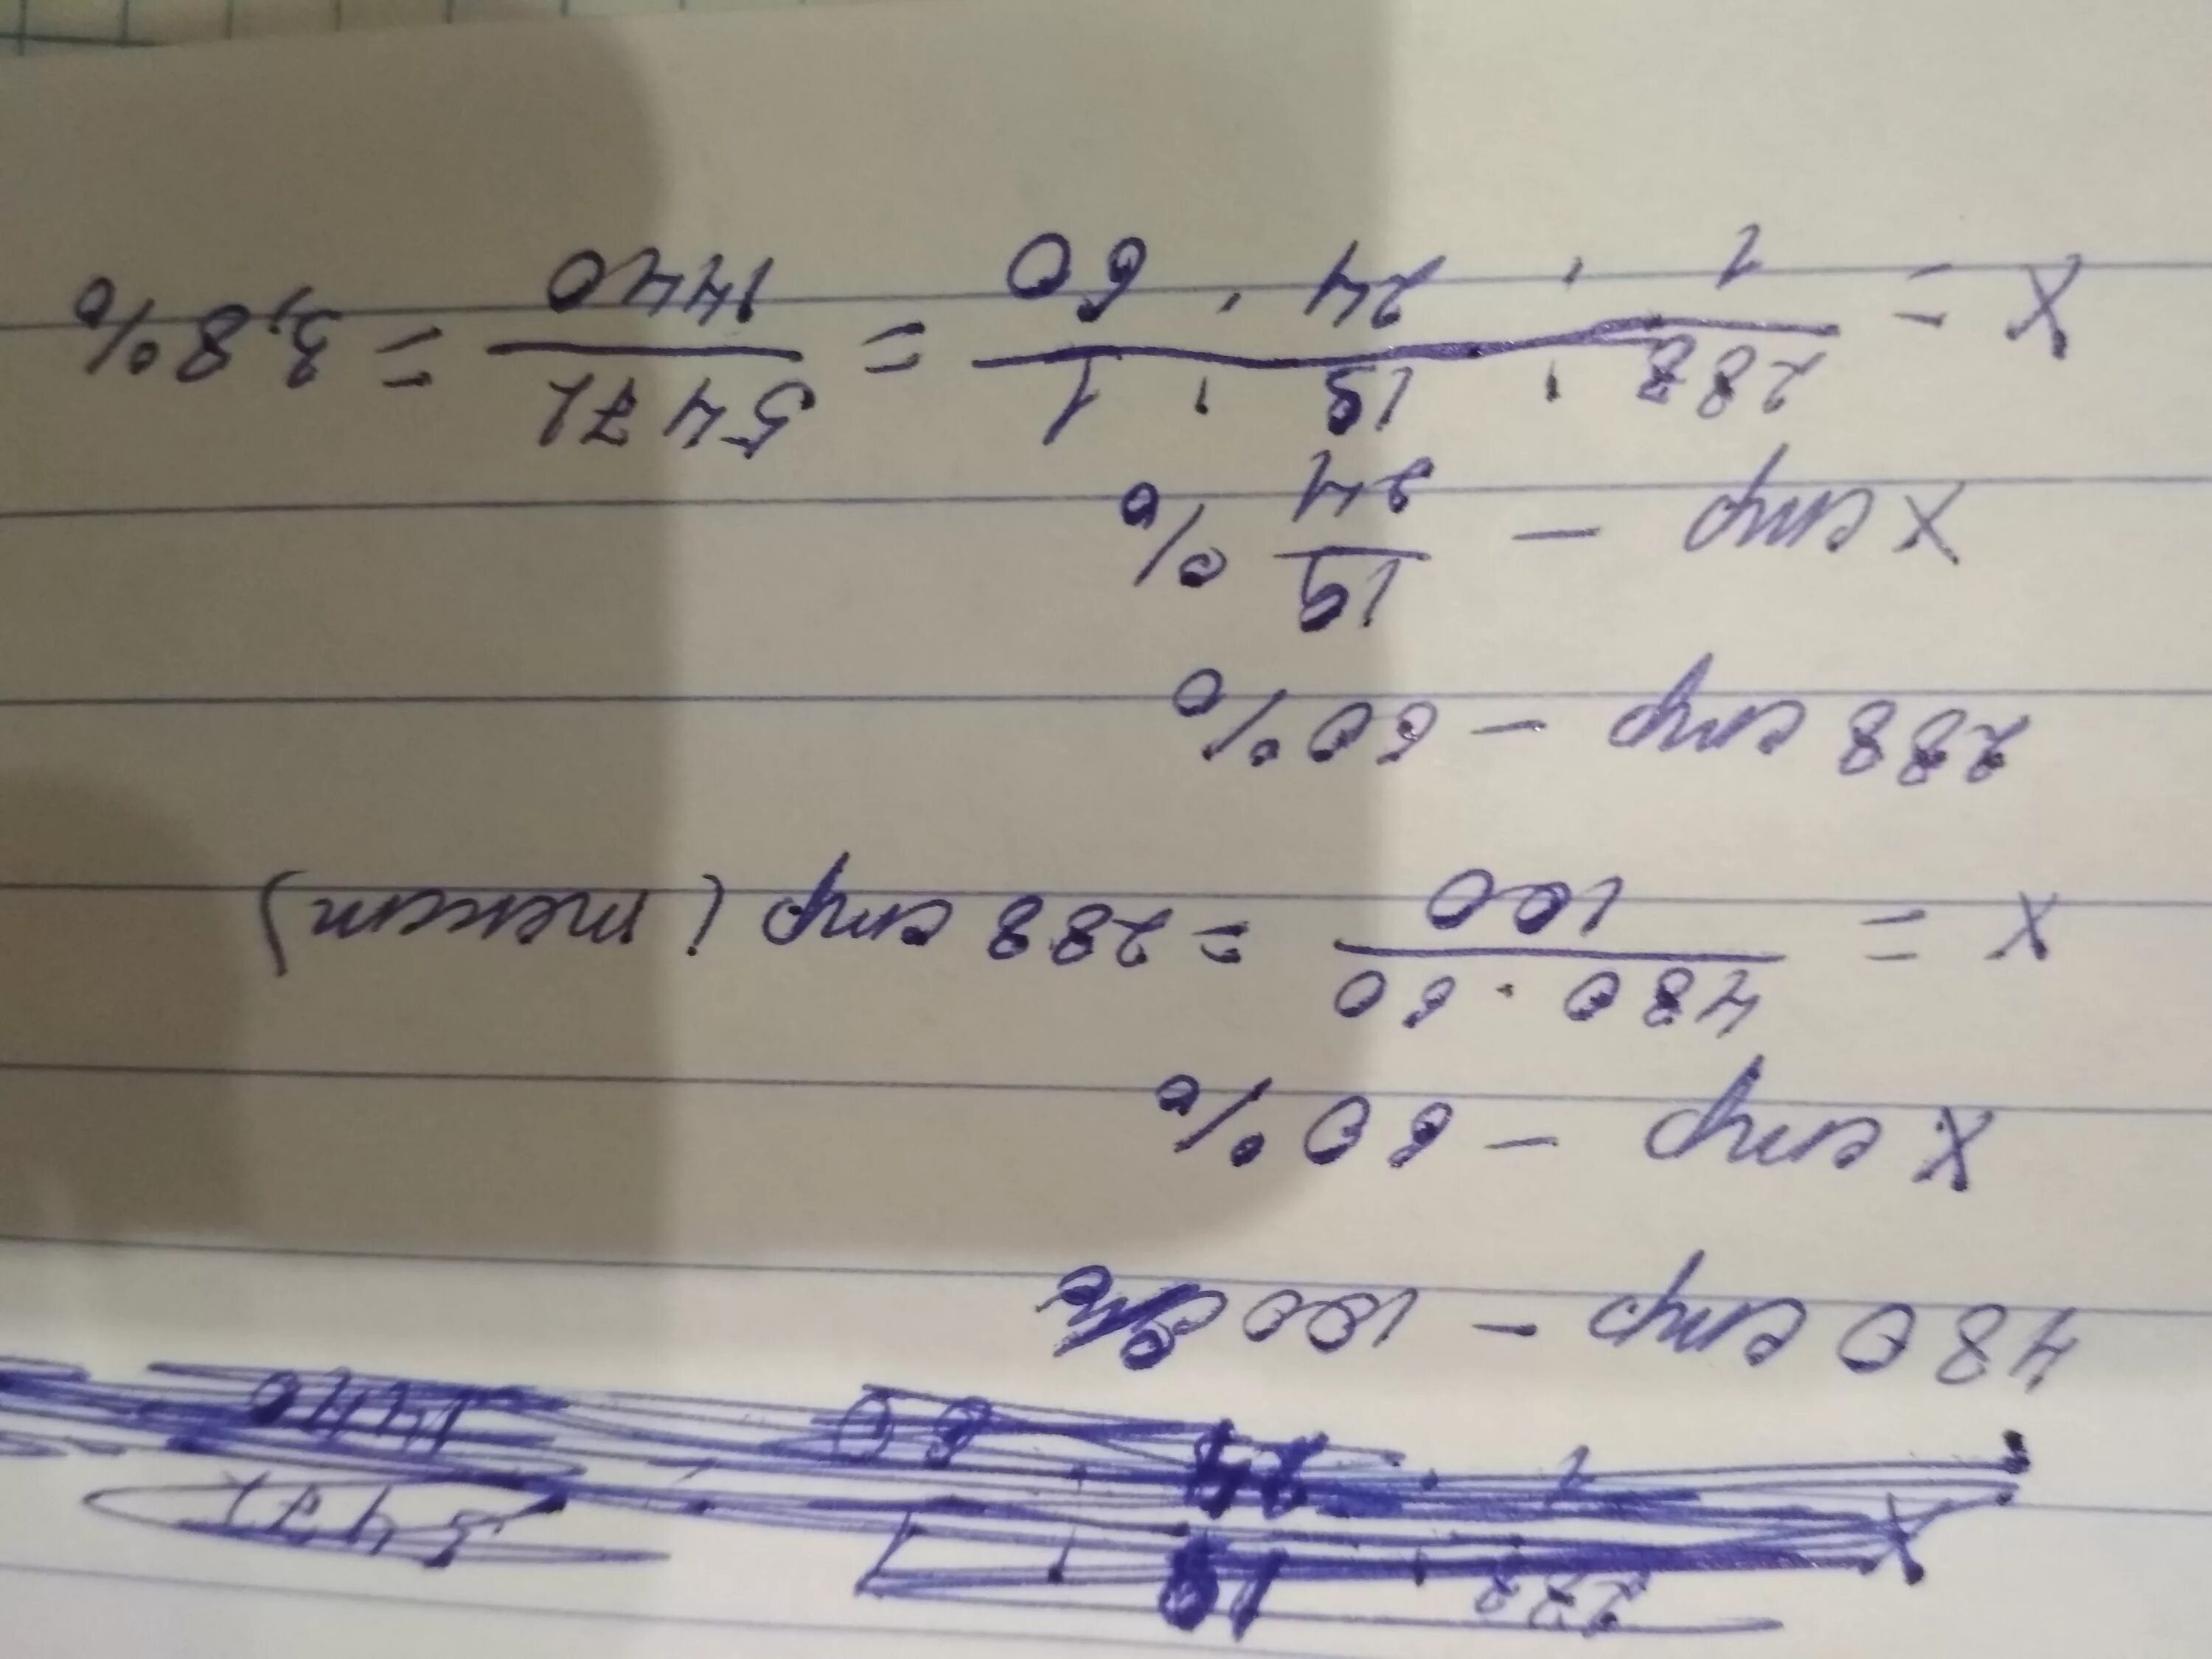 480 стр - 100 %
X стр - 60 %
X = 480 · 60 / 100 = 288 стр (текст)
288 стр - 60 %
X стр - 19/24 %
X = 288 · 19 · 1 / 1 · 24 · 60 = 5472 / 1440 = 3,8 %